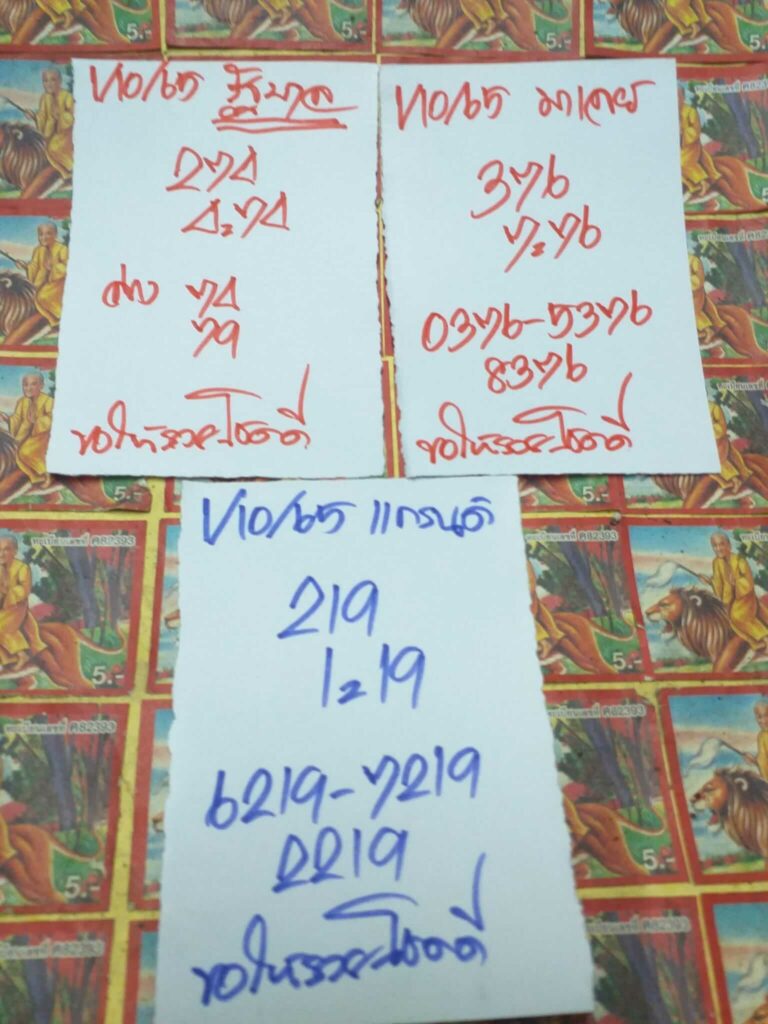 1/10/65 รัฐบาล
274
4=74
ล่าง 74
79
ขอให้รวยโชคดี
1/10/65 มาเลย์
376
7=76
0376-5376
8376
ขอให้รวยโชคดี
1/10/65 แกรนด์
219
1=19
6219-7219
2219
ขอให้รวยโชคดี
5.-
ทะเบียนเลขที่ ค82393